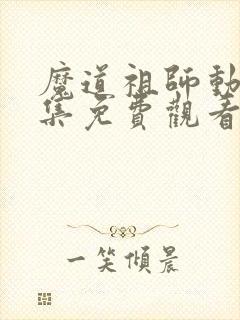 魔道祖師動
集免費觀看
一笑傾晨